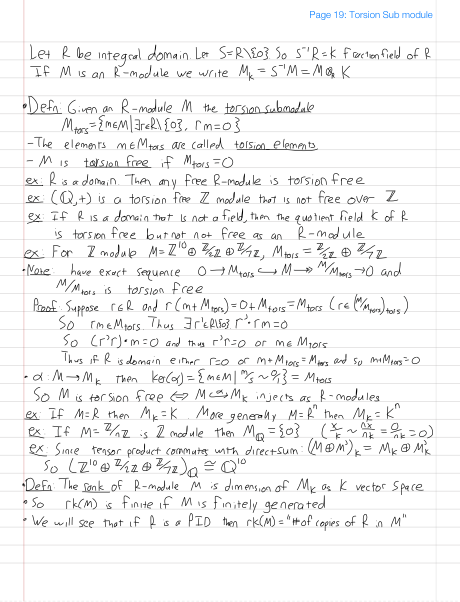 Page 19: Torsion Sub module
Let R be integral domain. Let S=R\{0} So S⁻¹R=K fraction field of R
If M is an R-module we write M_K = S⁻¹M = M⊗_R K
• Defn: Given an R-module M the torsion submodule
M_tors = {m∈M | ∃r∈R\{0}, rm=0}
- The elements m∈M_tors are called torsion elements
- M is torsion free if M_tors=0
ex: R is a domain. Then any free R-module is torsion free
ex: (Q,+) is a torsion free ℤ module that is not free over ℤ
ex: If R is a domain that is not a field, then the quotient field K of R
is torsion free but not free as an R-module
ex: For ℤ module M=ℤ¹⁰⊕ℤ/2ℤ⊕ℤ/7ℤ, M_tors = ℤ/2ℤ⊕ℤ/7ℤ
• Note: have exact sequence 0→M_tors↪M↠M/M_tors→0 and
M/M_tors is torsion free
Proof: Suppose r∈R and r(m+M_tors)=0+M_tors=M_tors (r∈(M/M_tors)_tors)
So rm∈M_tors. Thus ∃r'∈R\{0} r'·rm=0
So (r'r)·m=0 and thus r'r=0 or m∈M_tors
Thus if R is domain either r=0 or m+M_tors=M_tors and so m+M_tors=0
• α: M→M_K then ker(α)={m∈M | m/1 ~ 0/1} = M_tors
So M is torsion free ⟺ M↪M_K injects as R-modules
ex: If M=R then M_K=K. More generally M=Rⁿ then M_K=Kⁿ
ex: If M=ℤ/nℤ is ℤ module then M_Q={0} (x/k ~ nx/nk = 0/nk = 0)
ex: Since tensor product commutes with direct sum: (M⊕M')_K = M_K⊕M'_K
So (ℤ¹⁰⊕ℤ/2ℤ⊕ℤ/7ℤ)_Q ≅ Q¹⁰
• Defn: The rank of R-module M is dimension of M_K as K vector space
• So rk(M) is finite if M is finitely generated
• We will see that if R is a PID then rk(M)="# of copies of R in M"